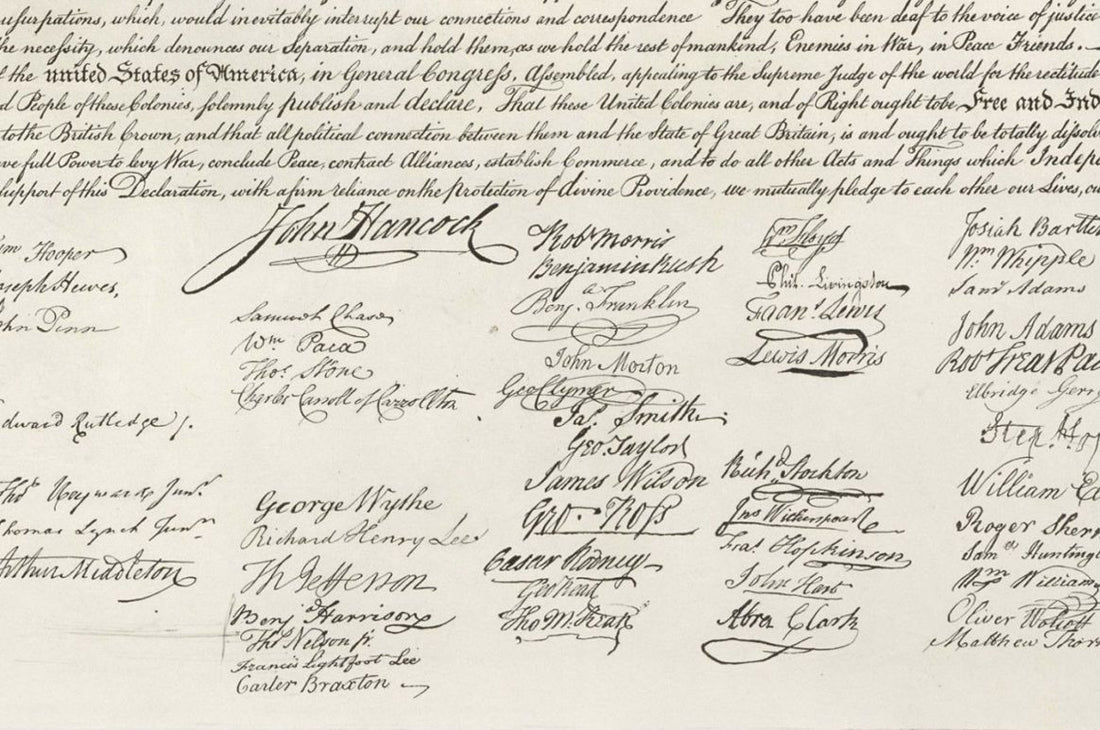 usurpations, which, would inevitably interrupt our connections and correspondence They too have been deaf to the voice of justice
he necessity, which denounces our Separation, and hold them, as we hold the rest of mankind, Enemies in War, in Peace Friends.
f the united States of America, in General Congress, Assembled, appealing to the Supreme Judge of the world for the rectitude
d People of these Colonies, solemnly publish and declare, That these United Colonies are, and of Right ought to be, Free and Ind
to the British Crown, and that all political connection between them and the State of Great Britain, is and ought to be totally dissolv
ve full Power to levy War, conclude Peace, contract Alliances, establish Commerce, and to do all other Acts and Things which Indep
support of this Declaration, with a firm reliance on the protection of divine Providence, we mutually pledge to each other our Lives, ou
Wm Hooper
Joseph Hewes,
John Penn
Edward Rutledge
Thos Heyward Junr.
Thomas Lynch Junr
Arthur Middleton
John Hancock
Samuel Chase
Wm Paca
Thos Stone
Charles Carroll of Carrollton
George Wythe
Richard Henry Lee
Th Jefferson
Benj Harrison
Thos Nelson jr.
Francis Lightfoot Lee
Carter Braxton
Robt Morris
Benjamin Rush
Benj. Franklin
John Morton
Geo Clymer
Jas. Smith
Geo. Taylor
James Wilson
Geo. Ross
Caesar Rodney
Geo Read
Tho M:Kean
Wm Floyd
Phil. Livingston
Frans. Lewis
Lewis Morris
Richd. Stockton
Jno Witherspoon
Fras. Hopkinson
John Hart
Abra Clark
Josiah Bartlet
Wm Whipple
Saml Adams
John Adams
Robt Treat Pai
Elbridge Gerry
Step. Hop
William El
Roger Sher
Saml Hunting
Wm William
Oliver Wolcott
Matthew Thorn